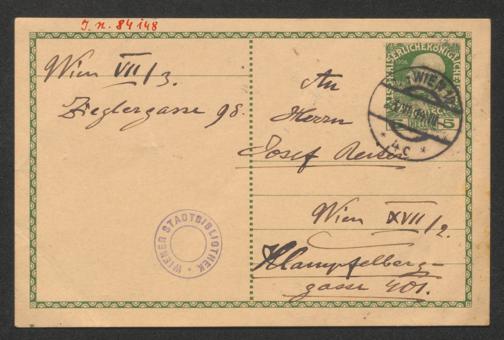 J. n. 84148
Wien VII/3.
Zieglergasse 98.
WIENER STADTBIBLIOTHEK
KAISERLICHE KÖNIGLICHE
5
WIEN
4c
An
Herrn
Josef Reiter
Wien XVII/2.
Klampfelberg-
gasse 401.